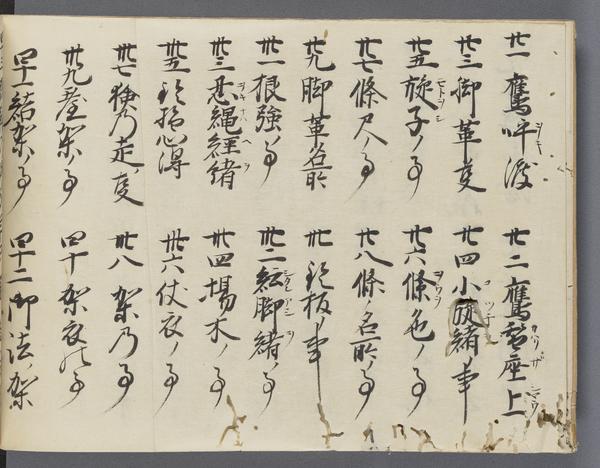 廿一鷹呼渡
廿二鷹 座上
廿三脚革叓
廿四小 緒ノ事
廿五旋子ノ事
廿六條色ノ事
廿七條尺ノ事
廿八條ノ名所ノ事
廿九脚革名所
卅 板ノ事
卅一根強ノ事
卅二紜脚緒ノ事
卅三忍縄経緒
卅四楊木ノ事
卅五 指心得
卅六伏衣ノ事
卅七 乃走ノ叓
卅八架乃事
卅九 架ノ事
四十架衣 事
四十一緒架ノ事
四十二御法ノ架